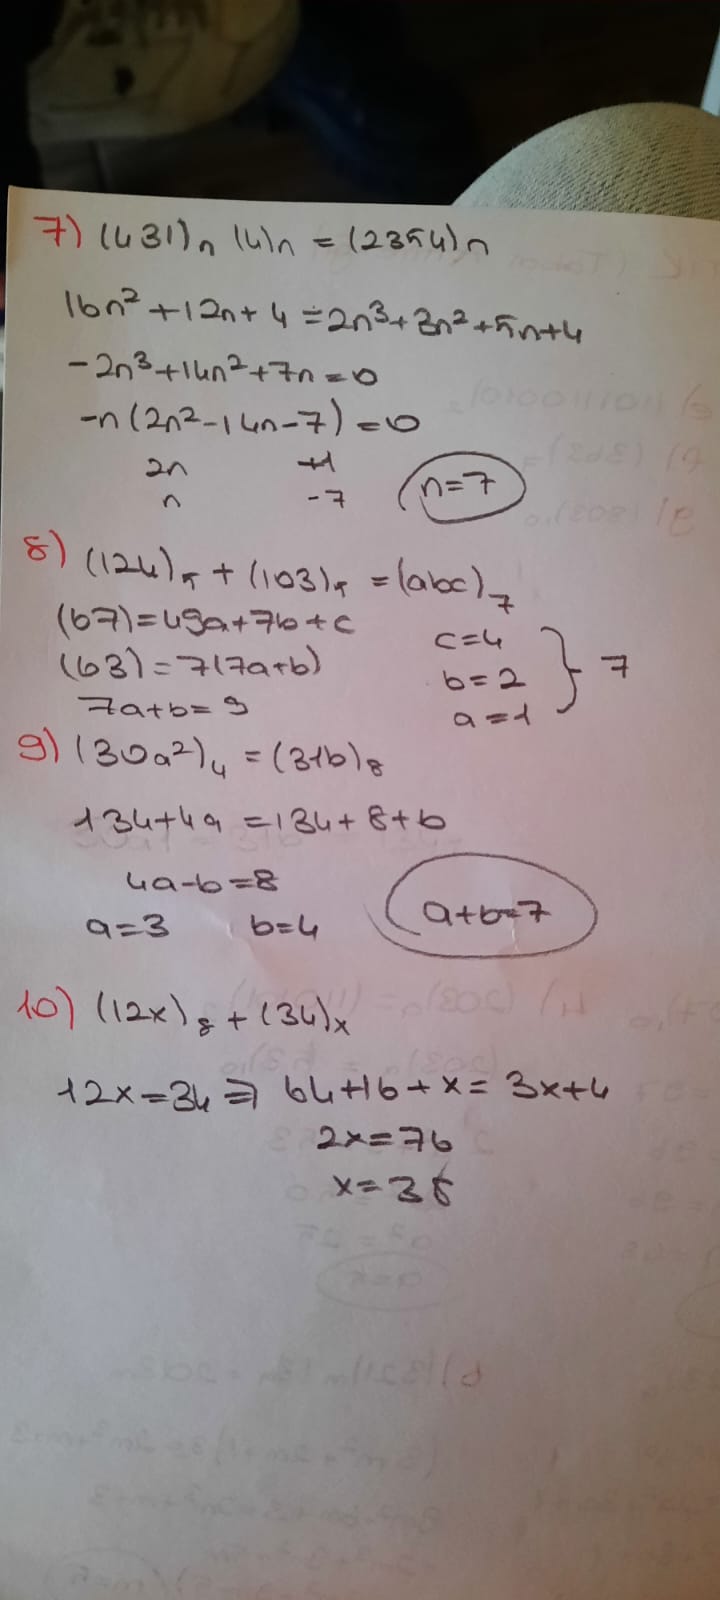 7) (431)n (4)n = (2354)n
16n² + 12n + 4 = 2n³ + 3n² + 5n + 4
-2n³ + 14n² + 7n = 0
-n (2n² - 14n - 7) = 0
2n +1
n -7 n=7
8) (124)₅ + (103)₅ = (abc)₇
(67) = 49a + 7b + c c=4
(63) = 7(7a+b) b=2 } 7
7a+b = 9 a=1
9) (30a2)₄ = (31b)₈
134+4a = 134+8+b
4a-b=8
a=3 b=4 a+b=7
10) (12x)₈ + (34)x
12x=34 ⇒ 64+16+x = 3x+4
2x=76
x=38